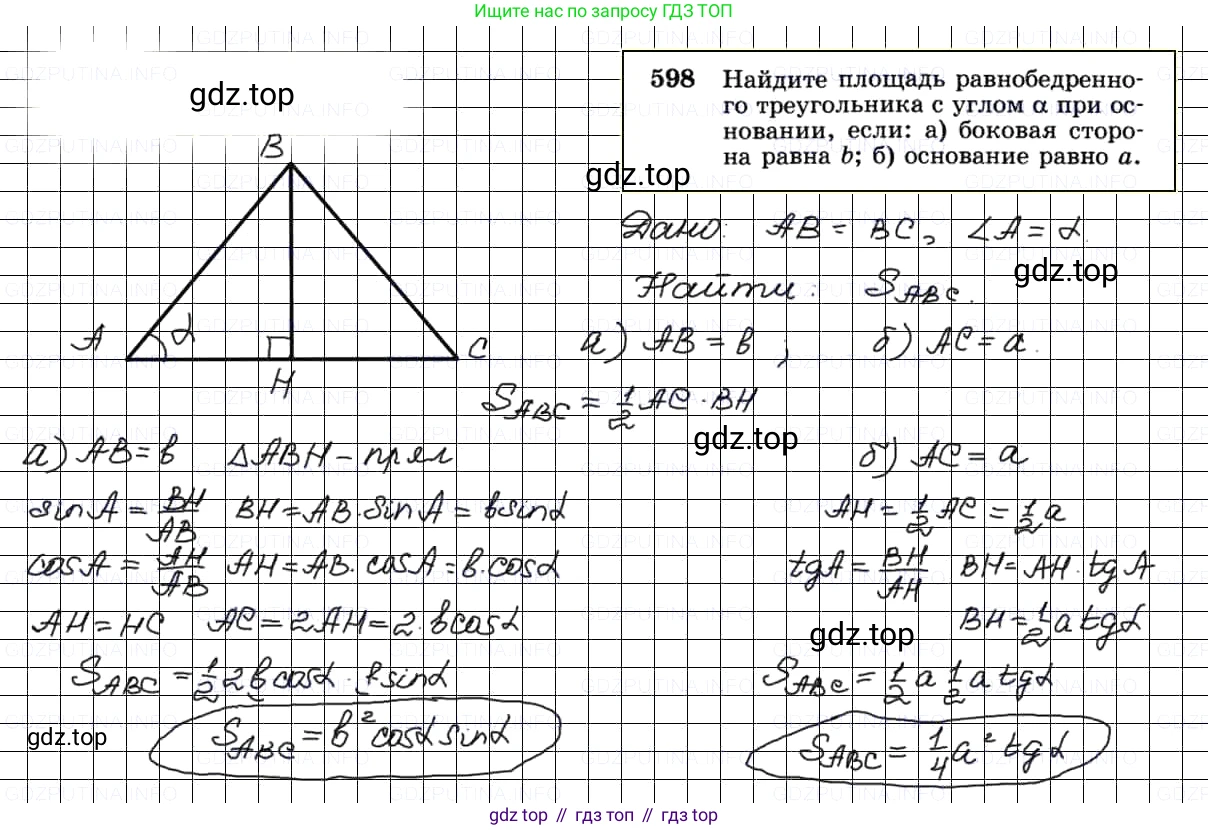 Ищите нас по запросу ГДЗ ТОП
gdz.top
598 Найдите площадь равнобедренно-
го треугольника с углом α при ос-
новании, если: а) боковая сторо-
на равна b; б) основание равно a.
gdz.top
B
A
α
C
H
Дано: AB = BC, ∠A = α.
gdz.top
Найти: S_ABC.
а) AB = b ; б) AC = a.
S_ABC = 1/2 AC · BH
gdz.top
а) AB = b ΔABH – прям
sin A = BH/AB BH = AB · sin A = b sin α
cos A = AH/AB AH = AB · cos A = b · cos α
AH = HC AC = 2AH = 2 · b cos α
S_ABC = 1/2 2b cos α · b sin α
S_ABC = b² cos α sin α
gdz.top
б) AC = a
AH = 1/2 AC = 1/2 a
tg A = BH/AH BH = AH · tg A
BH = 1/2 a tg α
gdz.top
S_ABC = 1/2 a 1/2 a tg α
S_ABC = 1/4 a² tg α
gdz top // гдз топ // gdz top
GDZPUTINA.INFO